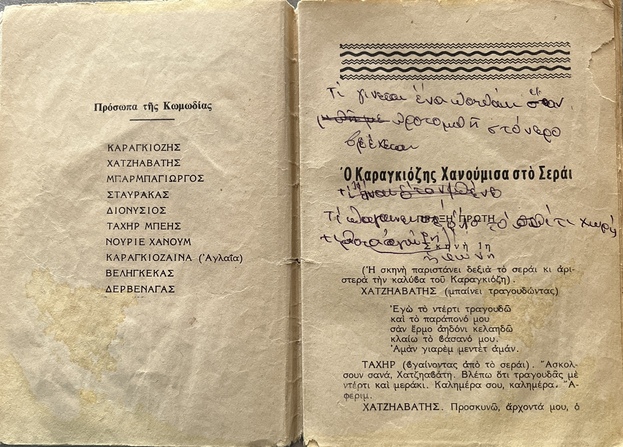 Πρόσωπα τῆς Κωμωδίας
ΚΑΡΑΓΚΙΟΖΗΣ
ΧΑΤΖΗΑΒΑΤΗΣ
ΜΠΑΡΜΠΑΓΙΩΡΓΟΣ
ΣΤΑΥΡΑΚΑΣ
ΔΙΟΝΥΣΙΟΣ
ΤΑΧΗΡ ΜΠΕΗΣ
ΝΟΥΡΙΕ ΧΑΝΟΥΜ
ΚΑΡΑΓΚΙΟΖΑΙΝΑ (Ἀγλαΐα)
ΒΕΛΗΓΚΕΚΑΣ
ΔΕΡΒΕΝΑΓΑΣ
Τί γίνεται ἕνα
στό νερό
βρέχεται
Ὁ Καραγκιόζης Χανούμισα στὸ Σεράι
ΠΡΑΞΗ ΠΡΩΤΗ
Σκηνὴ 1η
(Ἡ σκηνὴ παριστάνει δεξιὰ τὸ σεράι κι ἀρι-
στερὰ τὴν καλύβα τοῦ Καραγκιόζη).
ΧΑΤΖΗΑΒΑΤΗΣ (μπαίνει τραγουδώντας)
Ἐγὼ τὸ ντέρτι τραγουδῶ
καὶ τὸ παράπονό μου
σὰν ἔρμο ἀηδόνι κελαηδῶ
κλαίω τὸ βάσανό μου.
Ἀμὰν γιαρὲμ μεντὲτ ἀμάν.
ΤΑΧΗΡ (βγαίνοντας ἀπὸ τὸ σεράι). Ἀσκολ-
σουν σανά, Χατζηαβάτη. Βλέπω ὅτι τραγουδᾶς μὲ
ντέρτι καὶ μεράκι. Καλημέρα σου, καλημέρα. Ἀ-
φερίμ.
ΧΑΤΖΗΑΒΑΤΗΣ. Προσκυνῶ, ἄρχοντά μου, ὁ